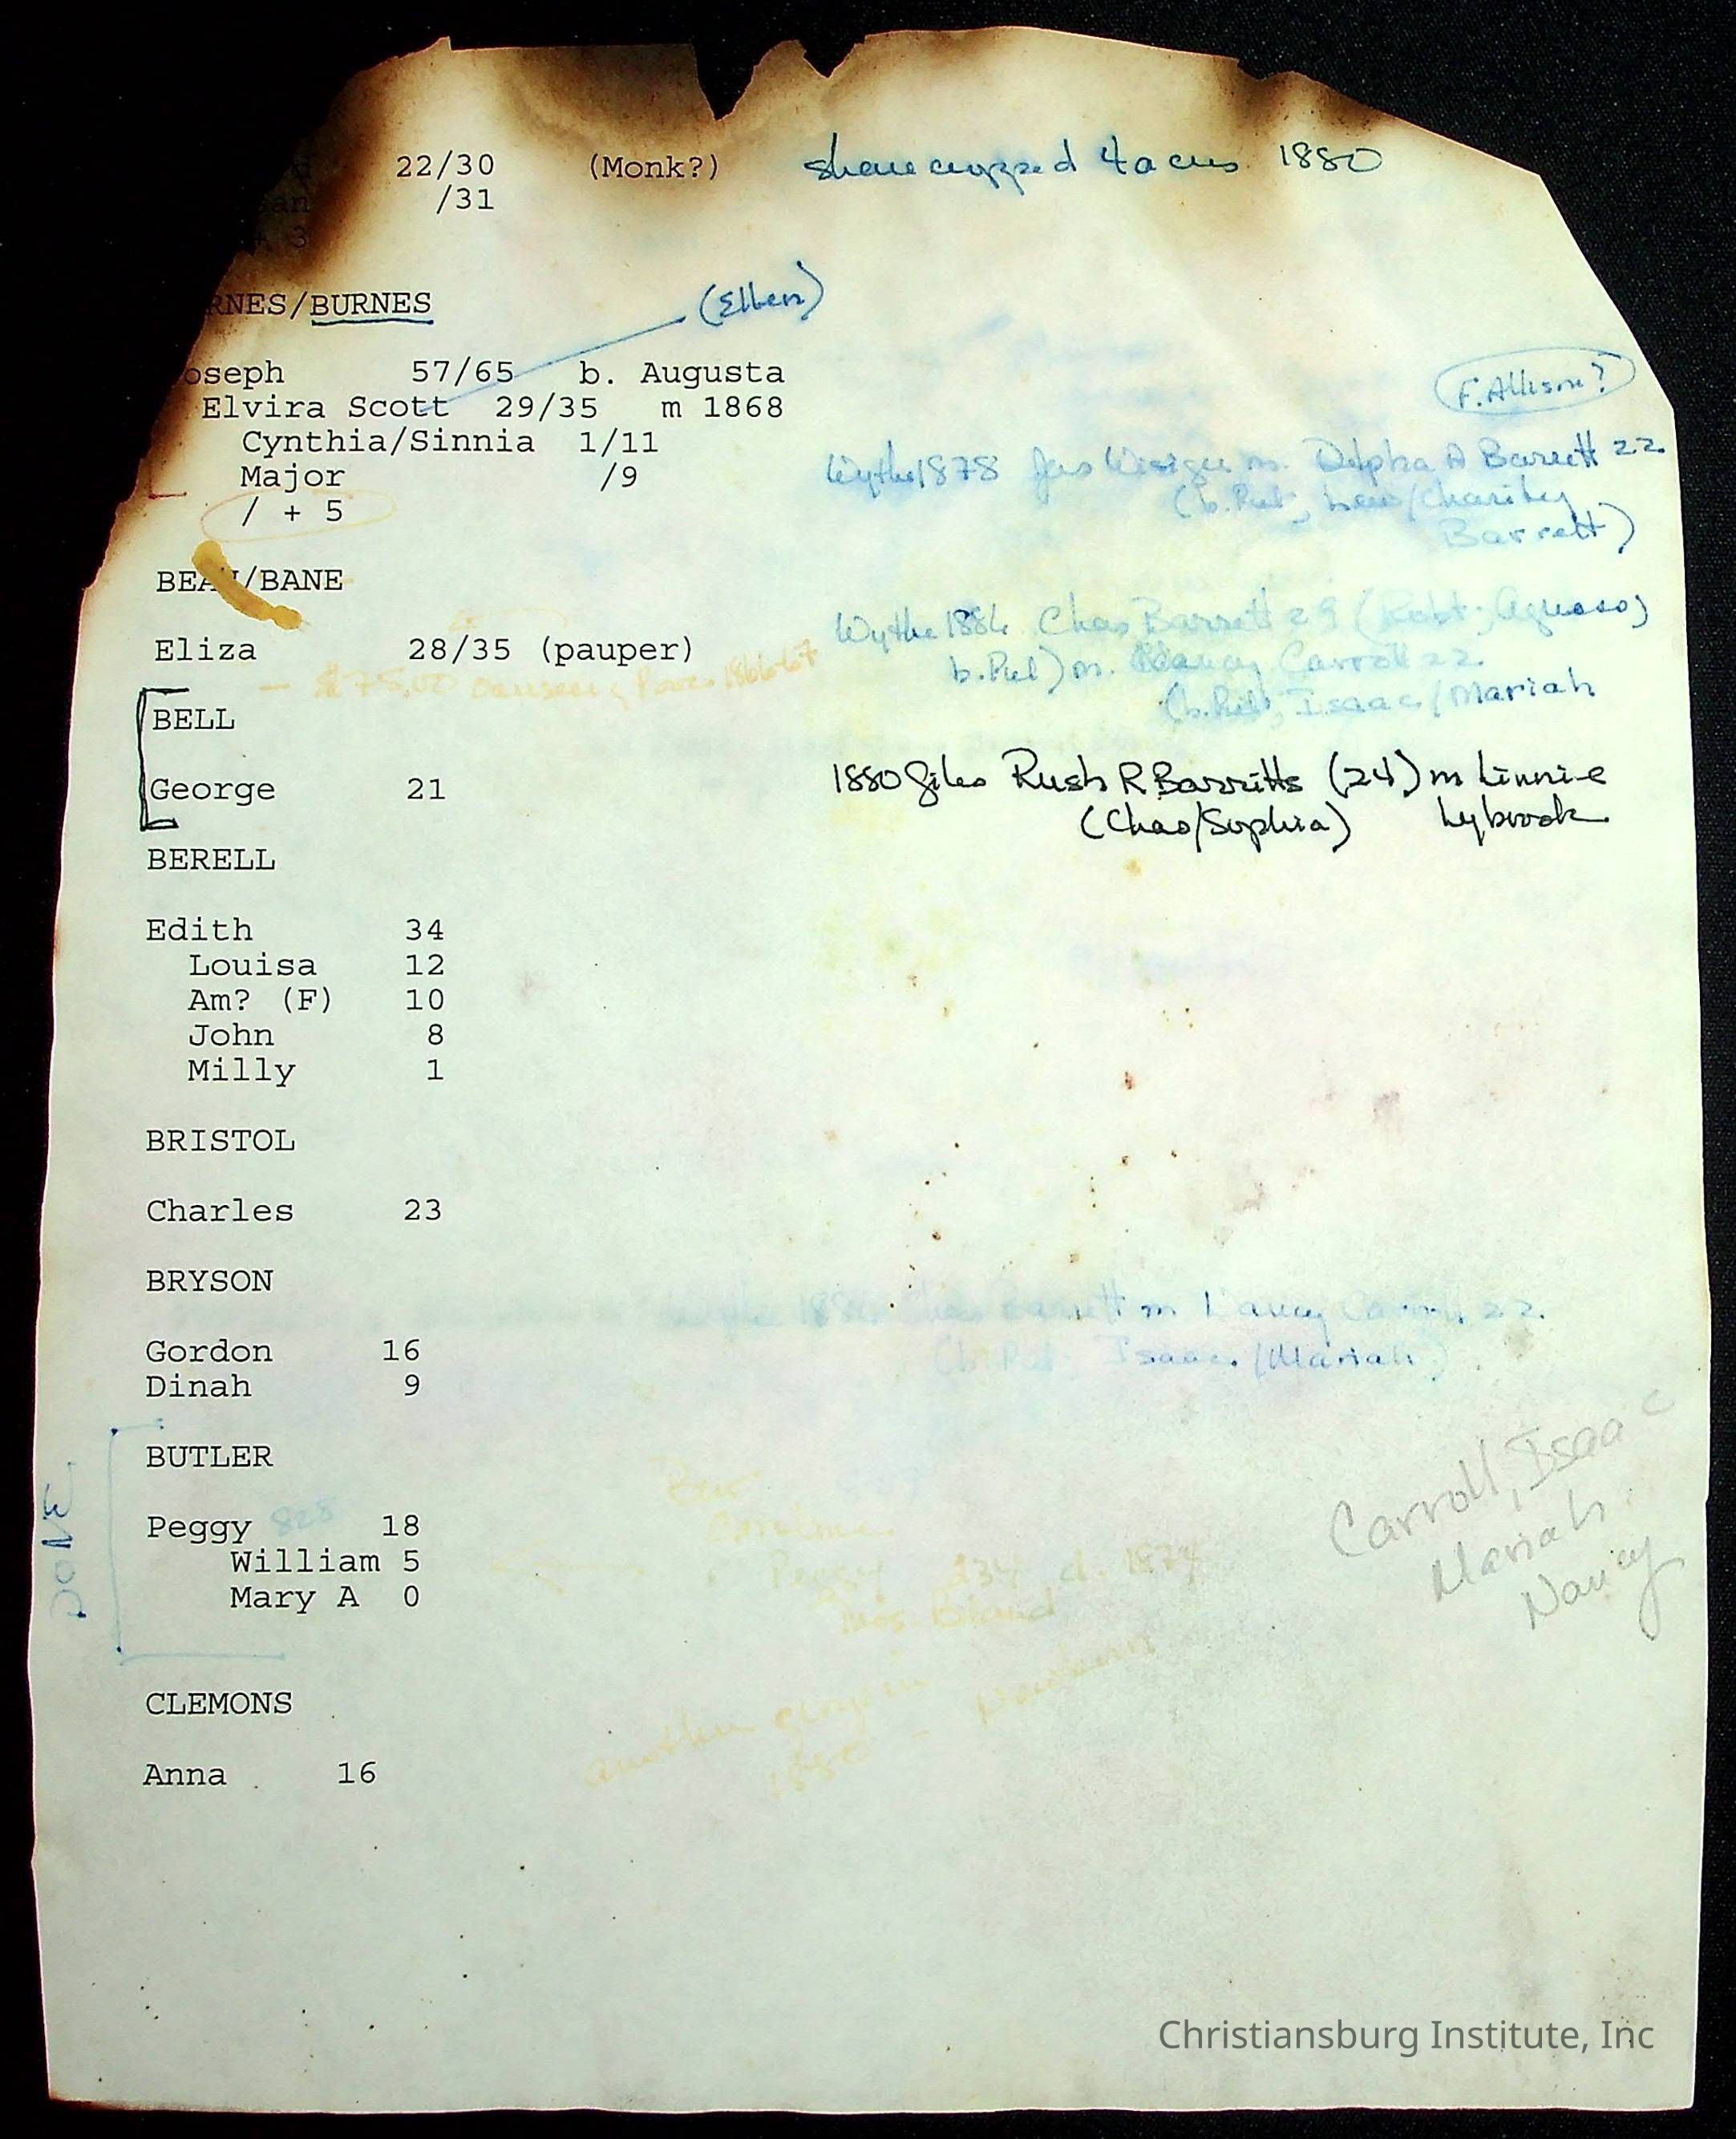 22/30 (Monk?) sharecropped 4 acres 1880
/31
3
RNES/BURNES
(Ellen)
oseph 57/65 b. Augusta
F. Allison?
Elvira Scott 29/35 m 1868
Cynthia/Sinnia 1/11
Wythe 1878 Jas m. Delpha A Barrett 22
Major /9
(b. Pul, Lew/Charity
/ + 5
Barrett)
BEAN/BANE
Wythe 1886 Chas Barrett 29 (Robt;
Eliza 28/35 (pauper)
b. Pul) m. Nancy Carroll 22
— $75.00 1866-67
(b. Pul, Isaac/Mariah
BELL
George 21
1880 Giles Rush R Barritts (24) m Linnie
(Chas/Sophia) Lybrook
BERELL
Edith 34
Louisa 12
Am? (F) 10
John 8
Milly 1
BRISTOL
Charles 23
BRYSON
Barrett m Nancy 22
Gordon 16
(b. Pul, Isaac/Mariah)
Dinah 9
Carroll, Isaac
Mariah
Nancy
DONE
BUTLER
Peggy 828 18
William 5
Peggy d. 1874
Mary A 0
another
1880
CLEMONS
Anna 16
Christiansburg Institute, Inc